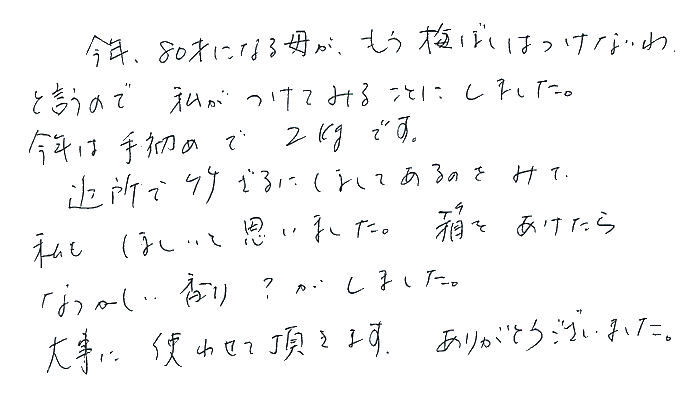 今年、80才になる母が、もう梅ぼしはつけないわ、
と言うので 私がつけてみることにしました。
今年は手初めで 2kgです。
近所で竹ざるにほしてあるのをみて、
私も ほしいと思いました。 箱をあけたら
なつかしい香り?がしました。
大事に 使わせて頂きます。 ありがとうございました。